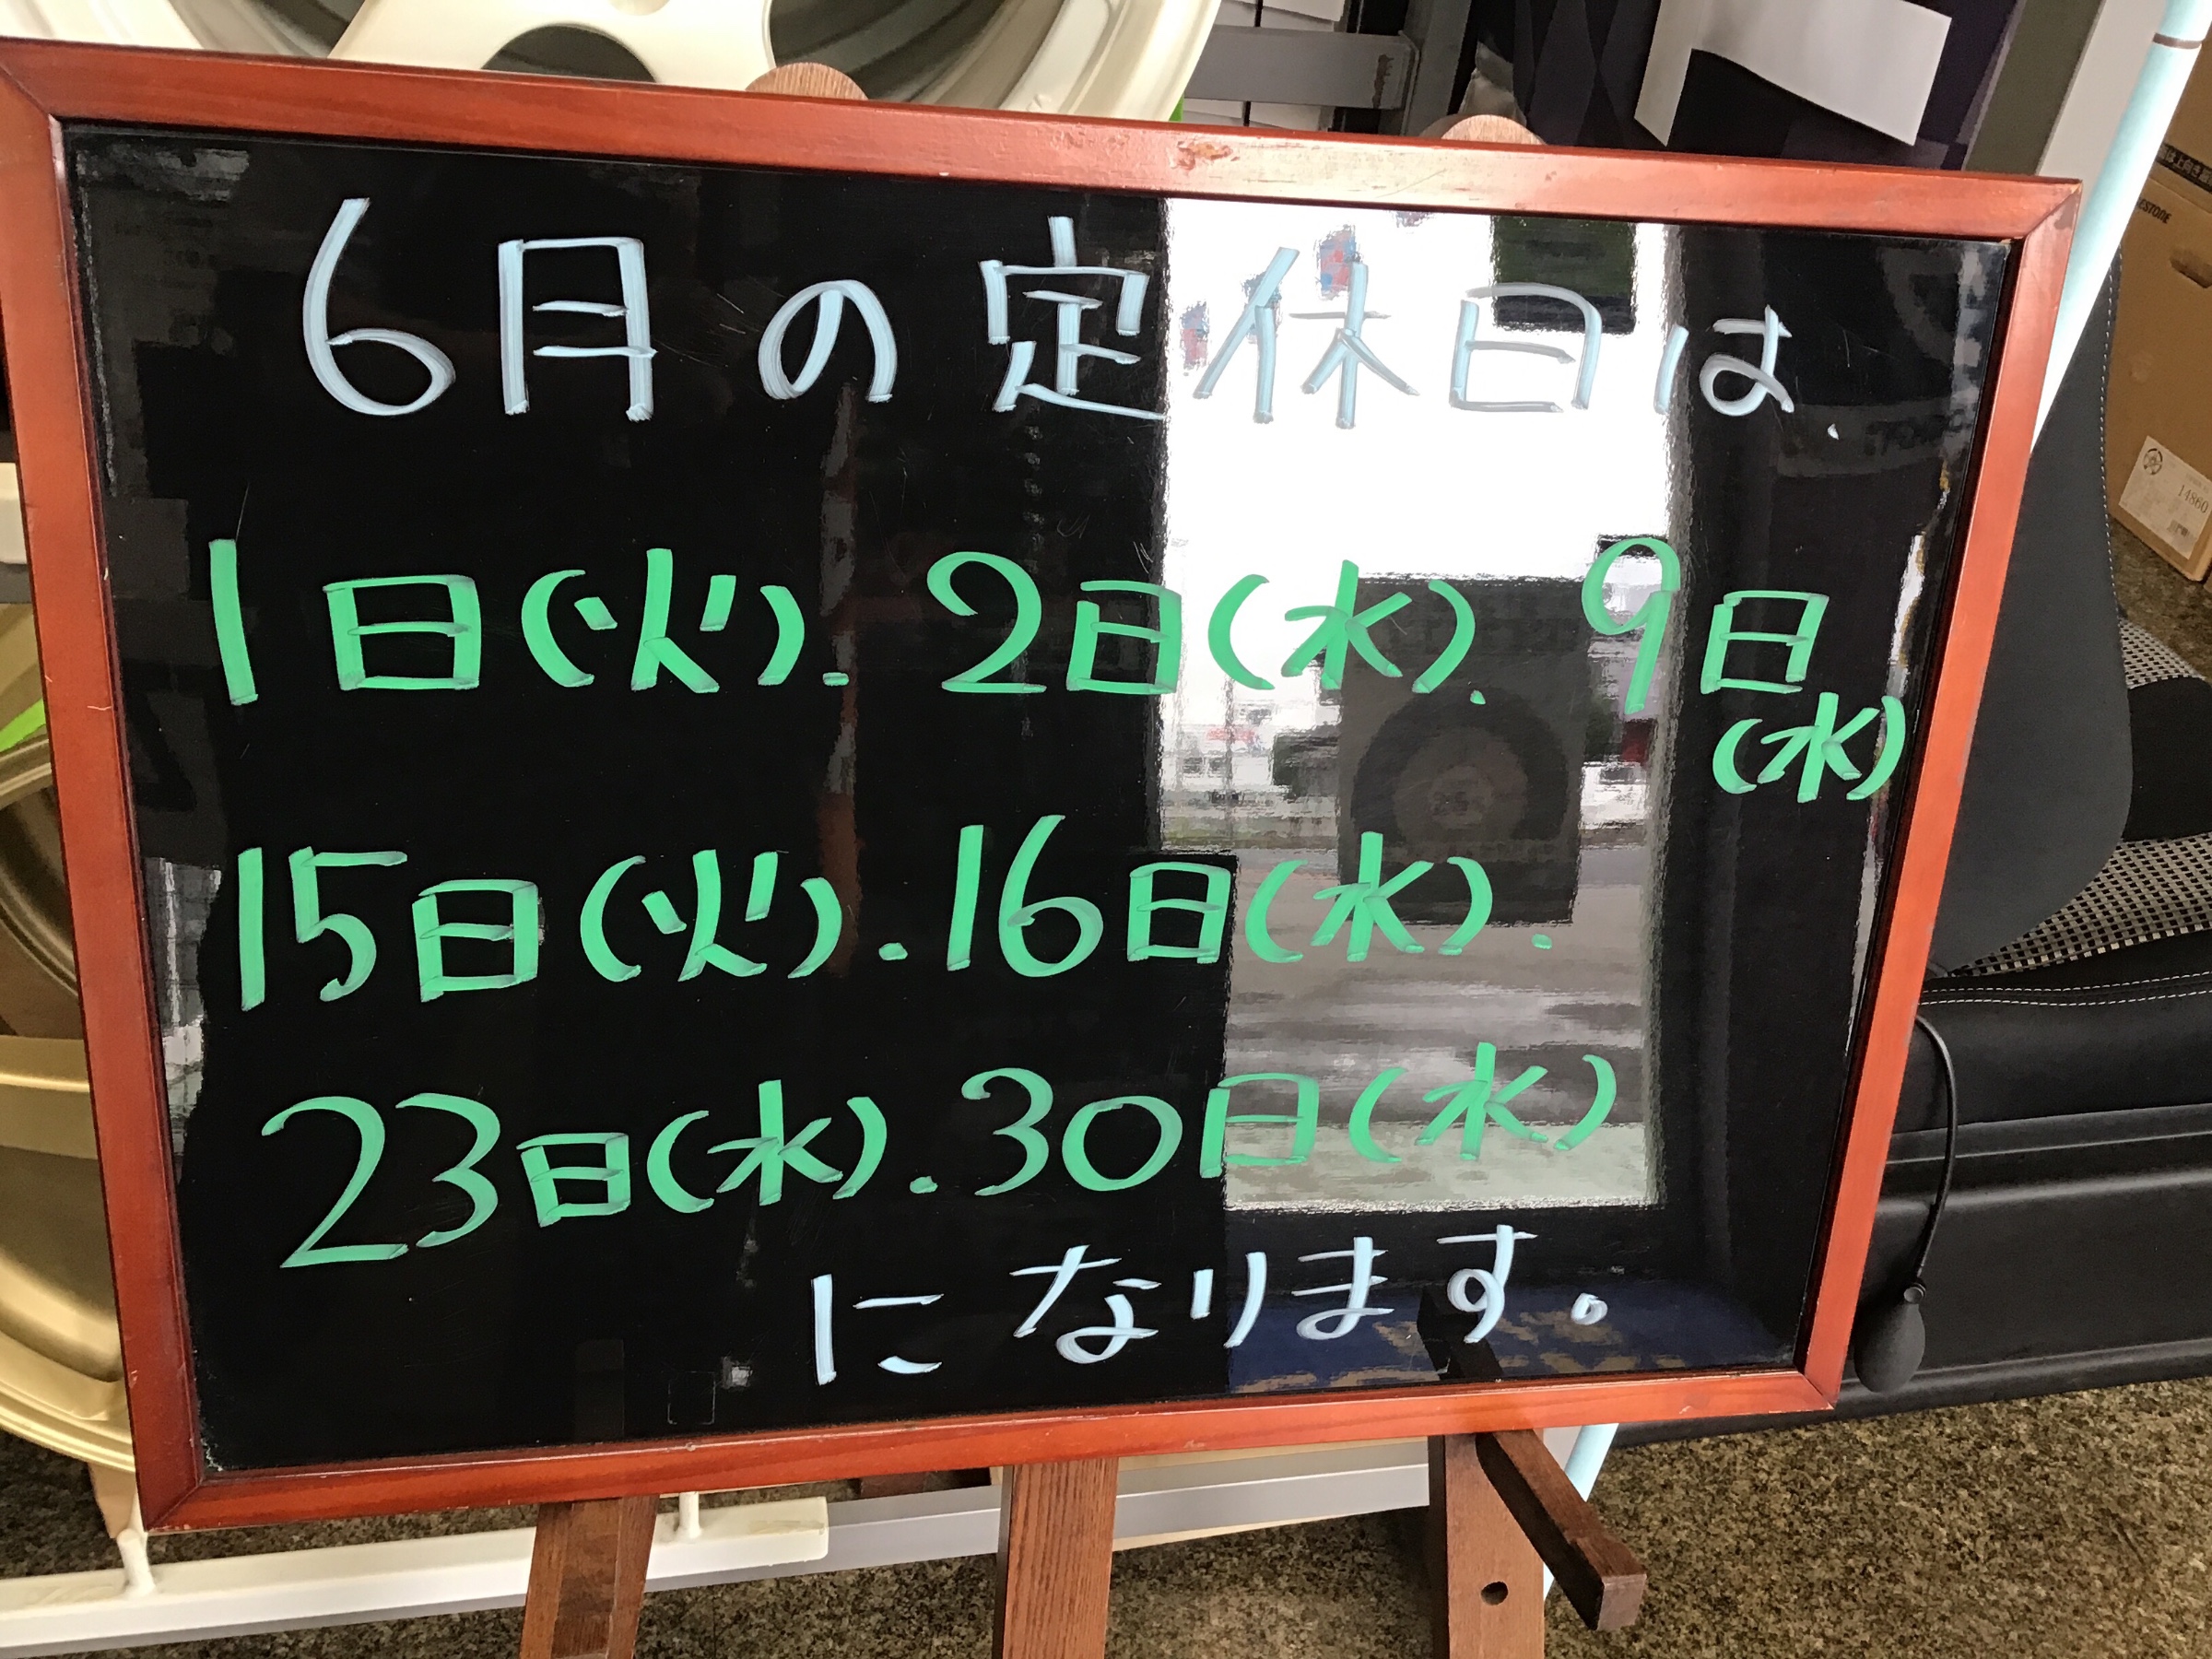 6月の定休日は、
1日(火). 2日(水). 9日
(水)
15日(火). 16日(水).
23日(水). 30日(水)
になります。
14860